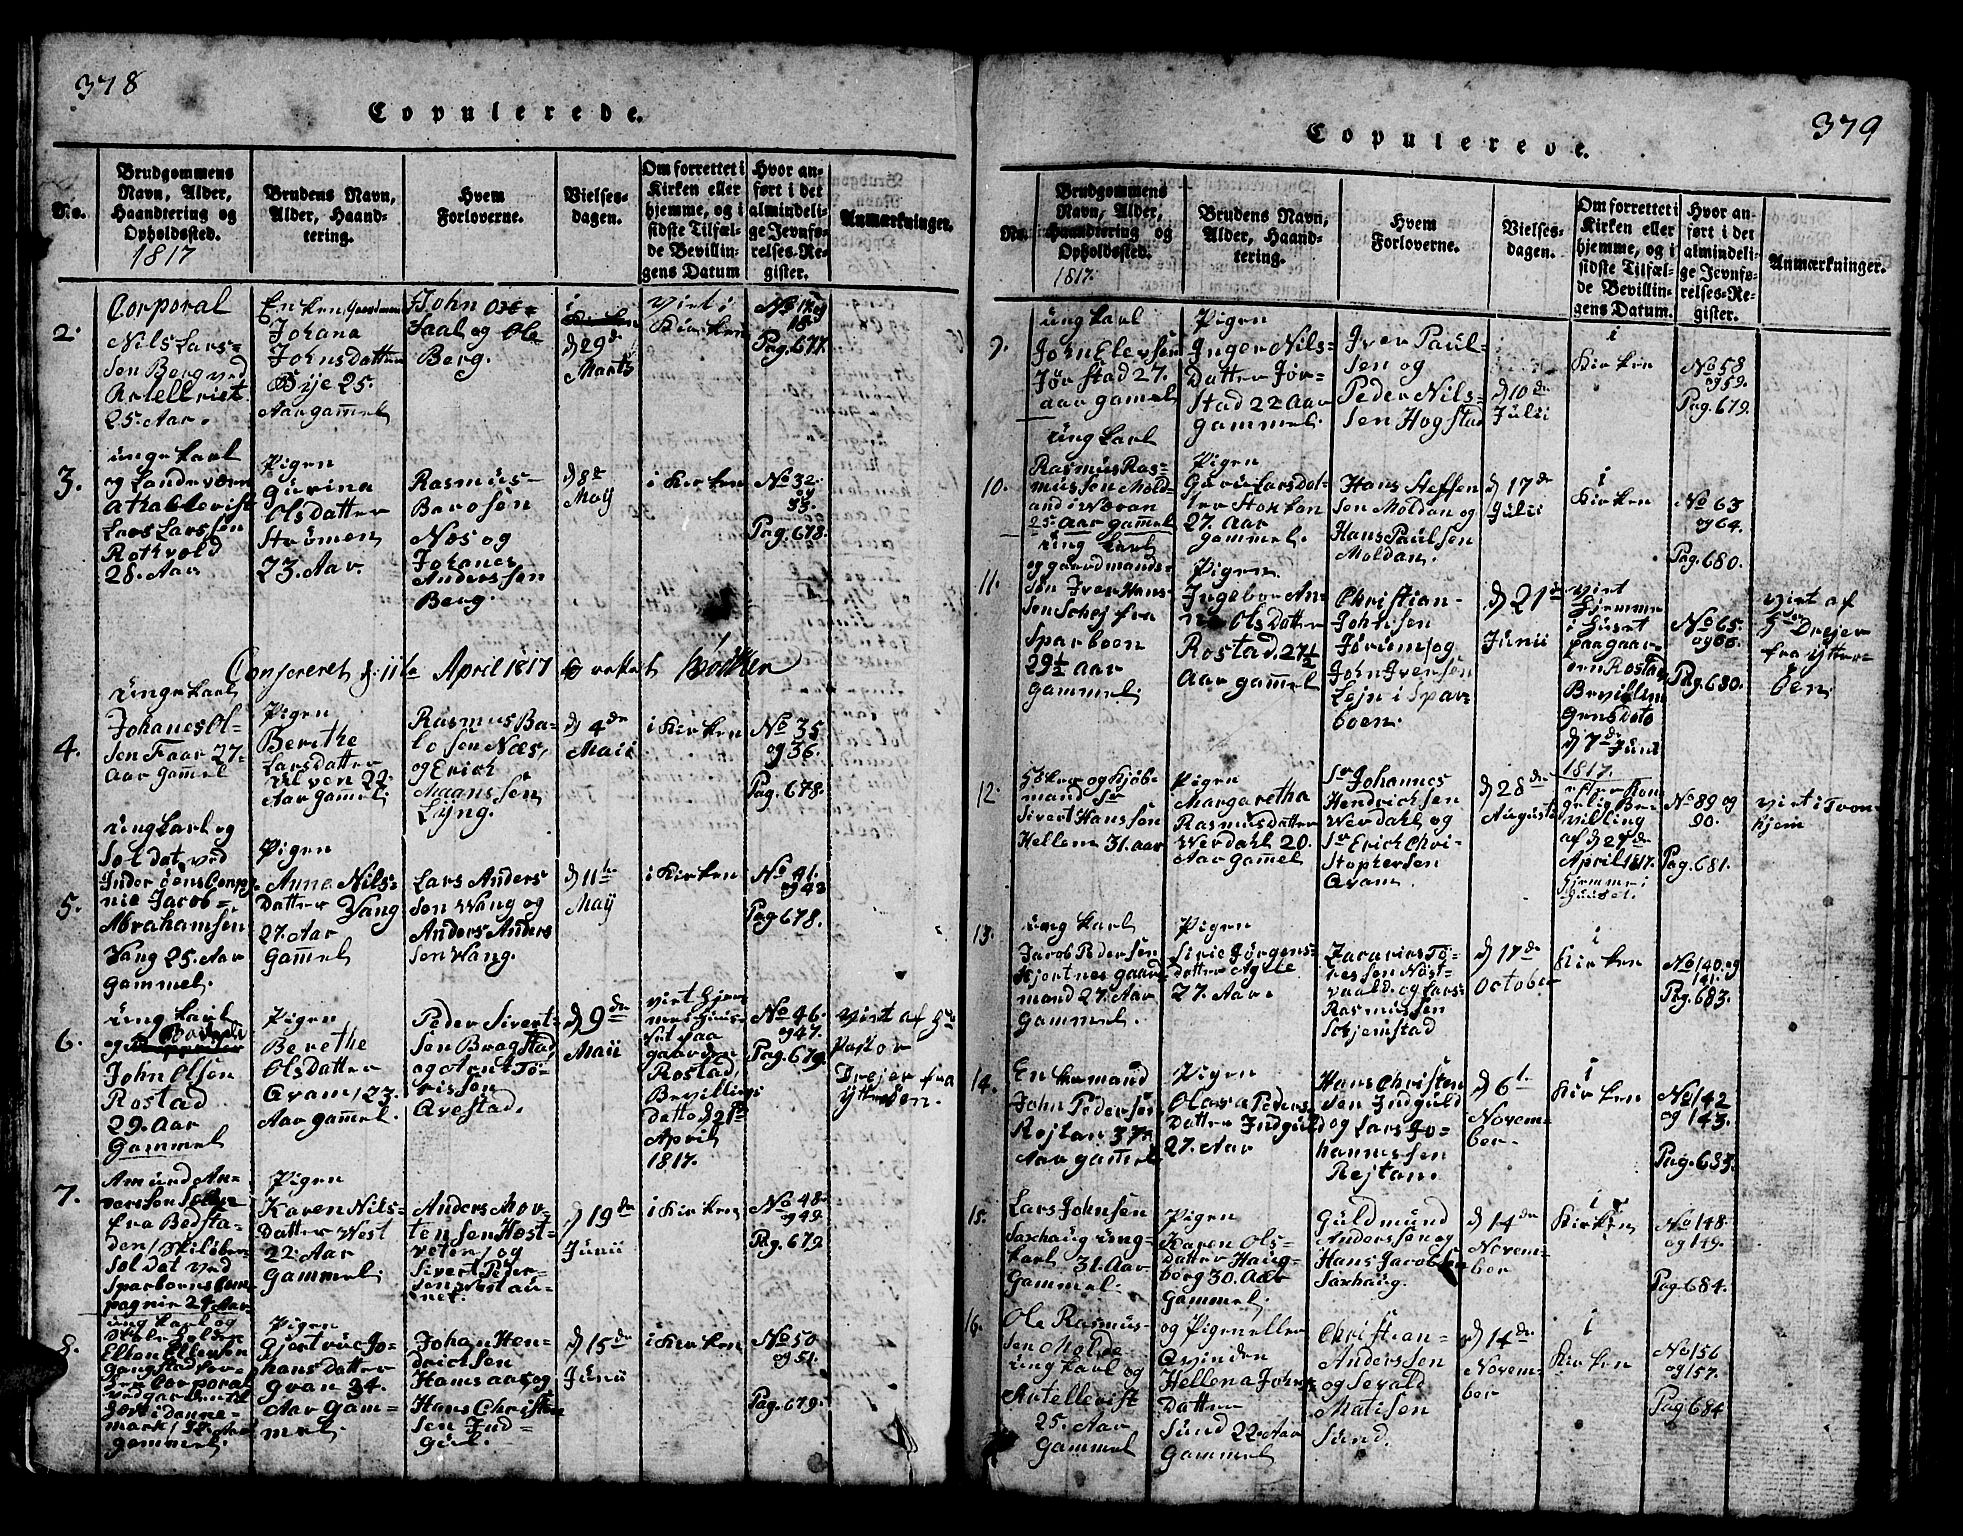 378
Copulerede.
No.
Brudgommens
Navn, Alder,
Haandtering og
Opholdssted.
1817
Brudens Navn,
Alder, Haand-
tering.
Hvem
Forloverne.
Vielses-
dagen.
Om forrettet i
Kirken eller
hjemme, og i
sidste Tilfæl-
de Bevillin-
gens Datum
Hvor an-
ført i det
almindeli-
ge Jevnfø-
relses-Re-
gister.
Anmærkninger.
2.
Corporal
Nils Lars-
sen Berg ved
25. Aar.
Enken
Johana
Johnsdatter
Bye 25.
Aar gammel
John
Saal og Ole
Berg.
i
d 29de
Marts
viet i
Kirken
No 17 og
18.
Pag. 677.
3.
unge karl
og Landeværn
Lars Larssen
Rothvold
28. Aar
Pigen
Gurina
Olsdatter
Strömen
23. Aar.
Rasmus
Barosen
Næs og
Johanes
Anderssen
Berg.
d 8de
Maij
i Kirken
No 32.
og
33.
Pag. 678.
Confereret d. 11te April 1817
4.
unge karl
Johanes Ol-
sen Faar 27
Aar gammel
Pigen
Berithe
Larsdatter
Ulven 22.
Aar gammel
Rasmus Ba-
ro sen Næs,
og Erich
Maanssen
Lÿng.
d 4de
Maii
i Kirken
No 35
og 36.
Pag. 678.
5.
ung karl og
Soldat ved
Inderöens Compag-
nie Jacob
Abrahamsen
Vang 25. Aar
gammel.
Pigen
Anna Nils-
Datter Vang
27. Aar
gammel
Lars Anders
sen Wang og
Anders Anders
sen Wang.
d 11te
Maij
i Kirken
No 41.
og 42
Pag. 678.
6.
ung karl
og
John Olsen
Rostad
29. Aar
gammel
Pigen
Berethe
Olsdatter
Aram, 23.
Aar gammel
Peder Sivert-
sen Bragstad,
og Arnt To-
rissen
Arestad.
d 9de
Maii
viet hjem-
me i huu-
set paa
gaarden
Rostad
Bevillings
Datto d 21de
April
1817.
No 46.
og 47.
Pag. 679
viet af Hr
Pastor
Drejer fra
Ytterøen.
7.
Amund An-
derssen
fra Bedsta-
den, Skiløber
Soldat ved
Sparboens Com
pagnie 24 Aar
Pigen
Karen Nils-
Datter West
22. Aar
gammel
Anders Mor-
tensen Høst-
veten, og
Sivert Peder-
sen Westau-
net.
d 19de
Junii
i Kirken
No 48.
og 49.
Pag. 679
8.
ung karl og
Elten Eltensen
Gangstad
Corporal
Danne-
mark, 32. Aar
gammel.
Pigen
Gjertrue Jo-
hansdatter
Gran 34.
Aar gam-
mel
Johan Hen-
drichsen
Hamsaas og
Hans Christen
sen Ind-
gul.
d 15de
Junii
i Kirken
No 50
og 51.
Pag. 679.
379
Copulerede.
No.
Brudgommens
Navn, Alder,
Haandtering og
Opholdssted.
1817.
Brudens Navn,
Alder, Haand-
tering.
Hvem
Forloverne.
Vielses-
dagen.
Om forrettet i
Kirken eller
hjemme, og i
sidste Tilfæl-
de Bevillin-
gens Datum.
Hvor an-
ført i det
almindeli-
ge Jevnfø-
relses-Re-
gister.
Anmærkninger.
9.
ung karl
John Elersen
Jørstad 27.
aar gamel
Pigen
Inger Nils-
Datter Jør-
stad 22 Aar
gammel.
Iver Paul-
sen og
Peder Nils-
sen Hogstad
d 10de
Julii
i
Kirken
No 58
og 59.
Pag. 679.
10.
ung karl
Rasmus Ras-
mussen Mold-
and i Wæran
25. Aar gammel
Pigen
Guru Larsdat-
ter Stokkan
27. Aar
gammel.
Hans Steffen
sen Moldan og
Hans Paulsen
Moldan.
d 17de
Julii
i
Kirken
No 63
og 64.
Pag. 680.
11.
ung karl
og gaardmands-
søn Iver Hans-
sen Schej fra
Sparboen
29½ aar
gammel
Pigen
Ingebor An-
na Olsdatter
Rostad. 27½
Aar gammel
Christian
Johnsen
Jørum, og
John Iversen
Lejn i Spar-
boen.
d 21de
Junii
viet
hjemme
i huset
paa gaar-
den Rostad
Bevillin
gens dato
d 7de Junii
1817.
No 65.
og 66.
Pag. 680.
viet af
Hr Drejer
fra Ytter-
öen
12.
og Kjøb-
mand Sr
Sivert Hanssen
Hellem 31. aar
Pigen
Margaretha
Rasmusdatter
Werdahl 20.
Aar gammel
Sr Johannes
Hendrichsen
Werdahl, og
Sr Erich Chri-
stophersen
Aram.
d 28de
Augusti
efter Kon-
gelig Be-
villing
af d 29de
April 1817.
hjemme i
huuset.
No 89 og
90.
Pag. 681.
viet i Tron-
hjem
13.
ung karl
Jacob Pedersen
Hjertnes gaard
mand 27. Aar
gammel.
Pigen
Siric Jørgens-
datter Agele
27. Aar.
Zacarias To-
ressen Næst-
vaald. og Lars
Rasmussen
Schjemstad
d 17de
October
i
Kirken
No 140. og
141.
Pag. 683.
14.
Enkemand
John Pedersen
Rejtan 37½
Aar gammel
Pigen
Olava Peders
Datter Indguld
27. Aar
Hans Christen
sen Indguld
og Lars Jo-
hannessen
Rejtan.
d 6t.
Novem-
ber.
i
Kirken
No 142
og 143.
Pag. 683.
15.
Lars Johnsen
Saxhaug ung-
karl 31. Aar
gammel.
Pigen
Karen Ols-
datter Haug-
berg 30. Aar
gammel.
Guldmund
Anderssen og
Hans Jacobsen
Saxhaug.
d 14de
Novem-
ber
i
Kirken
No 148.
og 149.
Pag. 684.
16.
Ole Rasmus-
sen Molde
ung karl og
Artellerist
25. Aar
gammel
og Pigen eller
Qvinden
Hellena Johns
Datter
Sund 22. Aar
gammel
Christian
Anderssen
og Sevald
Matisen
Sund.
d 14de
Novem-
ber
i
Kirken
No 156
og 157.
Pag 684